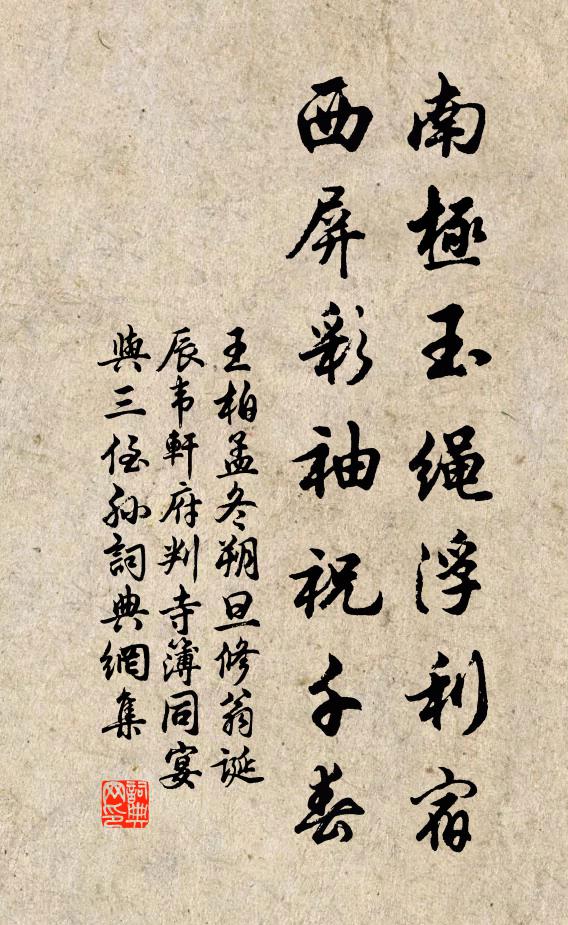 南極玉繩浮利宿
西屏彩袖祝千春
王柏孟冬朔旦修翁誕
辰韦軒府判寺簿同宴
與三侄孙詞典網集
詞典网印